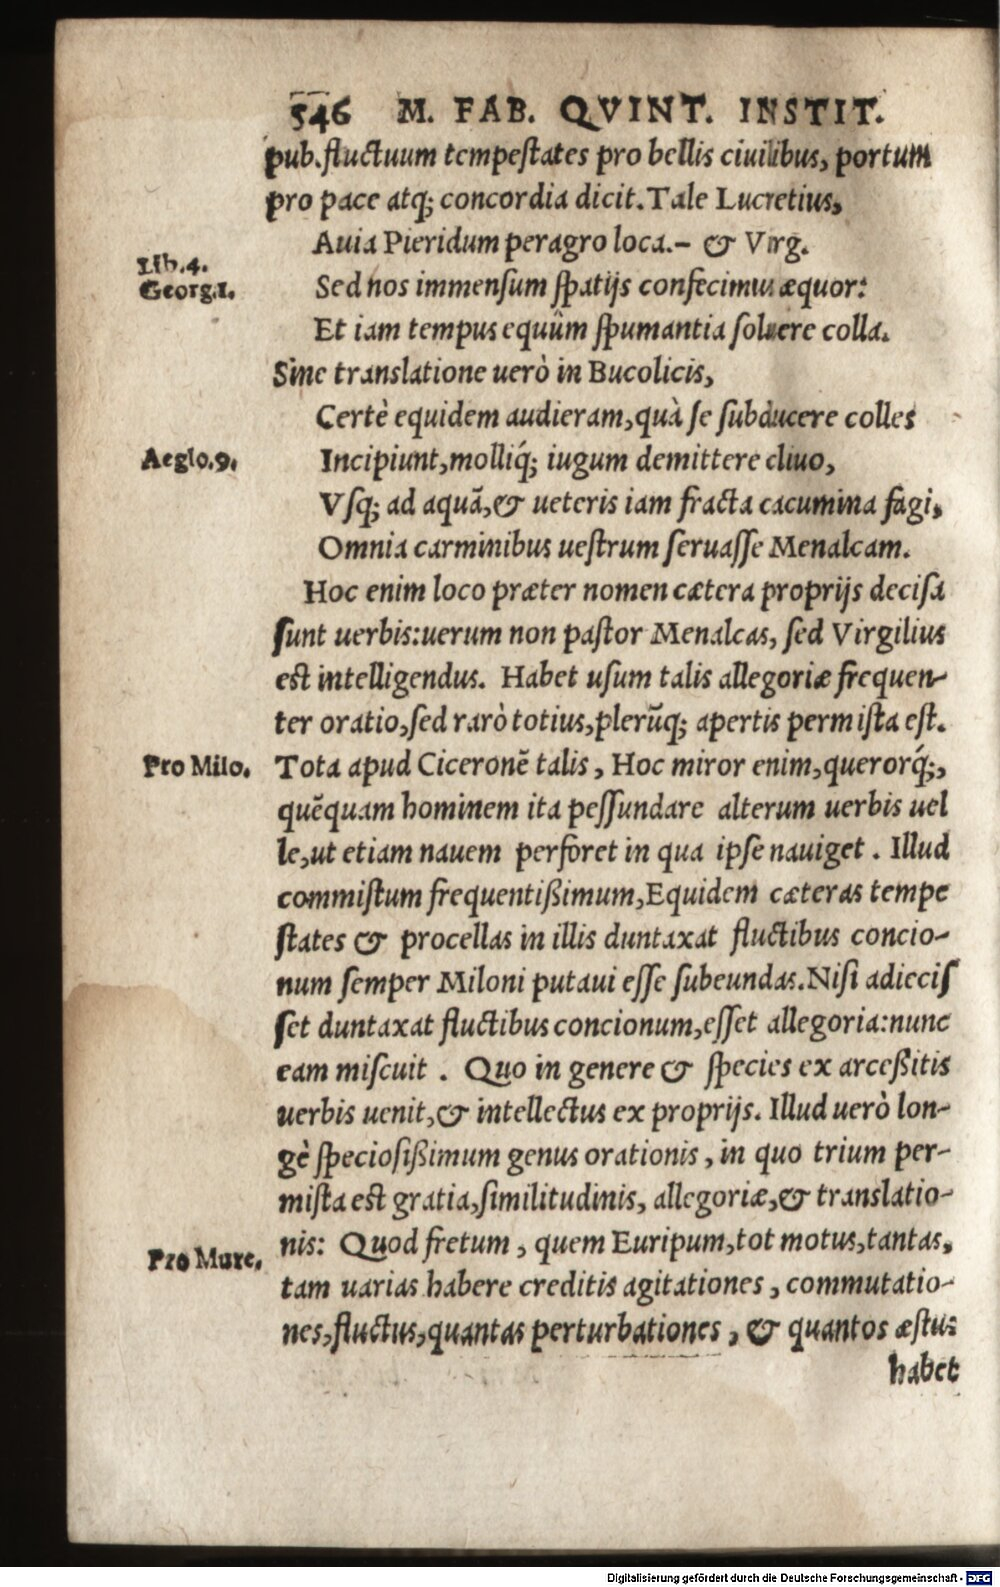 546 M. FAB. QVINT. INSTIT.
pub. fluctuum tempestates pro bellis ciuilibus, portum
pro pace atq; concordia dicit. Tale Lucretius,
Auia Pieridum peragro loca.- & Virg.
Lib.4.
Georg.1.
Sed nos immensum spatijs confecimus æquor:
Et iam tempus equûm spumantia soluere colla.
Sine translatione uerò in Bucolicis,
Certè equidem audieram, quà se subducere colles
Aeglo.9.
Incipiunt, molliq́; iugum demittere cliuo,
Vsq; ad aquã, & ueteris iam fracta cacumina fagi,
Omnia carminibus uestrum seruasse Menalcam.
Hoc enim loco præter nomen cætera proprijs decisa
sunt uerbis: uerum non pastor Menalcas, sed Virgilius
est intelligendus. Habet usum talis allegoriæ frequen-
ter oratio, sed rarò totius, plerũq; apertis permista est.
Pro Milo.
Tota apud Ciceronẽ talis, Hoc miror enim, querorq́;,
quẽquam hominem ita pessundare alterum uerbis uel
le, ut etiam nauem perforet in qua ipse nauiget. Illud
commistum frequentißimum, Equidem cæteras tempe
states & procellas in illis duntaxat fluctibus concio-
num semper Miloni putaui esse subeundas. Nisi adiecis
set duntaxat fluctibus concionum, esset allegoria: nunc
eam miscuit. Quo in genere & species ex arceßitis
uerbis uenit, & intellectus ex proprijs. Illud uerò lon-
gè speciosißimum genus orationis, in quo trium per-
mista est gratia, similitudinis, allegoriæ, & translatio-
Pro Mure.
nis: Quod fretum, quem Euripum, tot motus, tantas,
tam uarias habere creditis agitationes, commutatio-
nes, fluctus, quantas perturbationes, & quantos æstus
habet
Digitalisierung gefördert durch die Deutsche Forschungsgemeinschaft - DFG